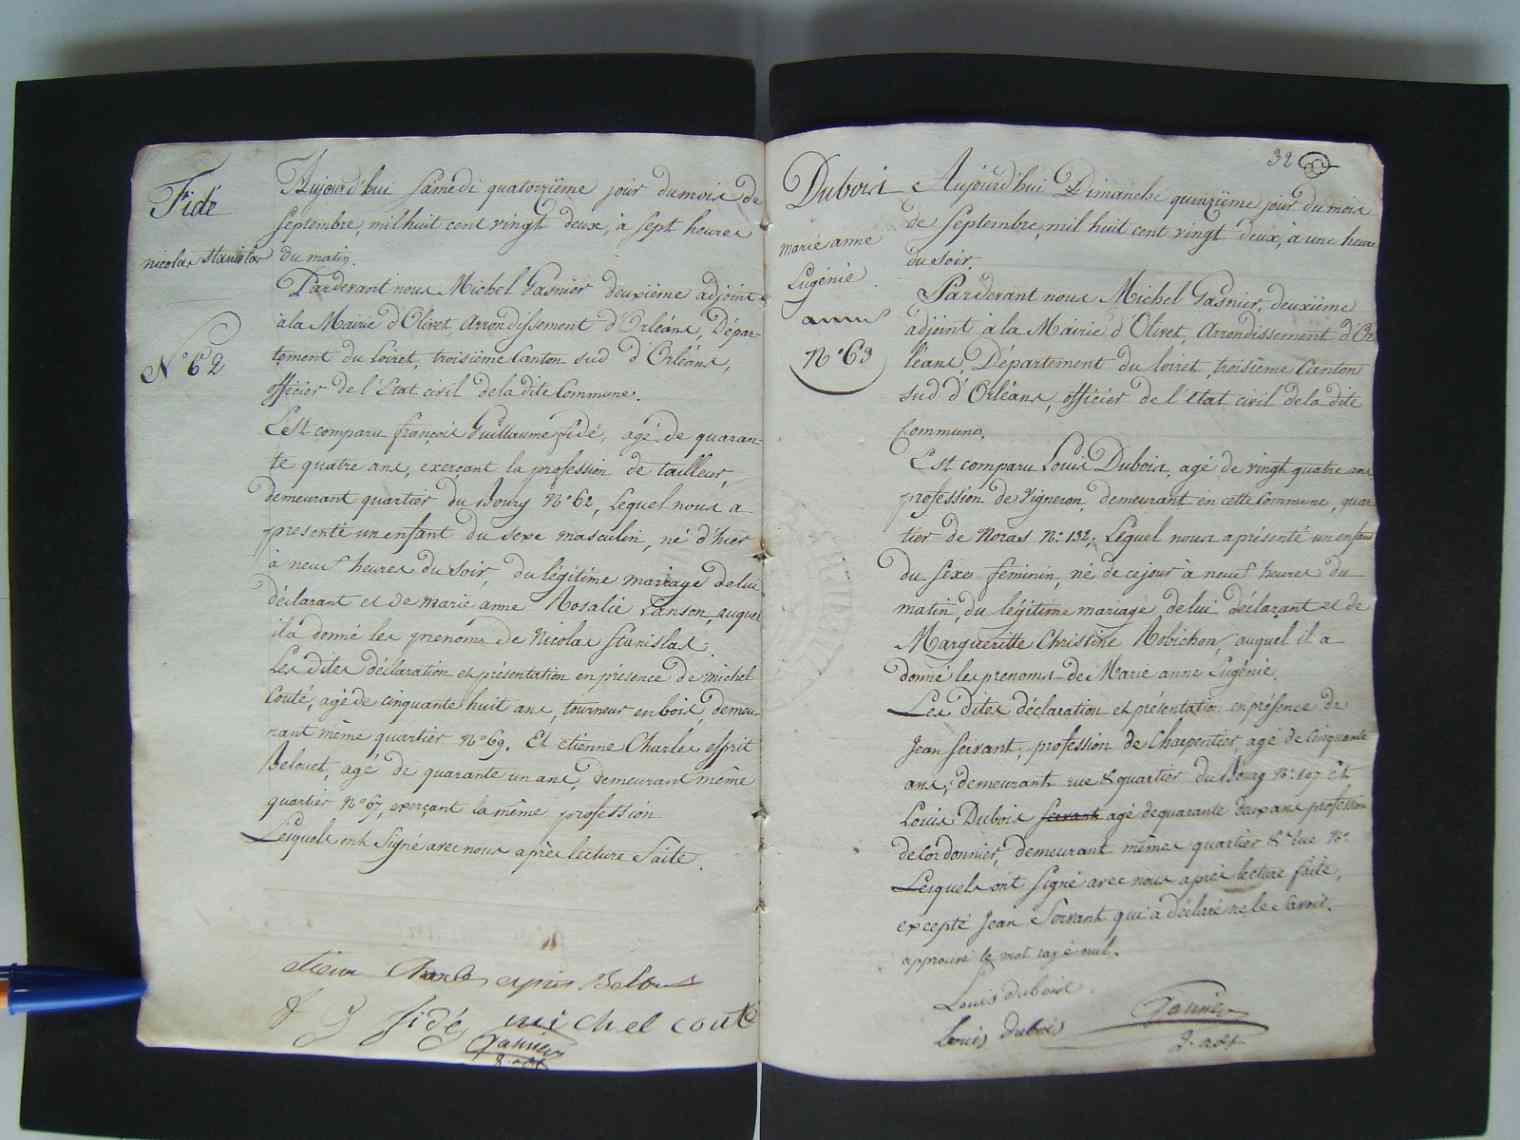 Fidé
nicolas stanislas
N° 62
Aujourd'hui samedi quatorzième jour du mois de
Septembre, mil huit cent vingt deux, à sept heures
du matin.
Pardevant nous Michel Gasnier deuxième adjoint
à la Mairie d'Olivet, Arrondissement d'Orléans, Dépar-
tement du Loiret, troisième Canton sud d'Orléans,
officier de l'Etat civil de la dite Commune.
Est comparu françois Guillaume fidé, agé de quaran-
te quatre ans, exerçant la profession de tailleur,
demeurant quartier du Bourg N° 62, Lequel nous a
présenté un enfant du sexe masculin, né d'hier
à neuf heures du soir, du légitime mariage de lui
déclarant et de marie anne Rosalie Lanson, auquel
il a donné les prenoms de Nicolas Stanislas.
Les dites déclaration et présentation en présence de michel
Couté, agé de cinquante huit ans, tourneur en bois, demeu-
rant même quartier N° 69. Et etienne Charles esprit
Belouet, agé de quarante un ans, demeurant même
quartier N° 67, exerçant la même profession
Lesquels ont signé avec nous après lecture faite.
etienne Charles esprit
f g fidé michel couté
Gasnier
2. adj
32
Dubois
marie anne
Eugénie
N° 63
Aujourd'hui Dimanche quinzième jour du mois
de Septembre, mil huit cent vingt deux, à une heure
du soir.
Pardevant nous Michel Gasnier, deuxième
adjoint à la Mairie d'Olivet, Arrondissement d'Or
léans, Département du loiret, troisième Canton
sud d'Orléans, officier de l'Etat civil de la dite
Commune.
Est comparu Louis Dubois, agé de vingt quatre ans
profession de Vigneron, demeurant en cette Commune, quar
tier de Noras N° 132, Lequel nous a présenté un enfant
du sexe feminin, né de ce jour à neuf heures du
matin, du légitime mariage de lui déclarant et de
Margueritte Christine Robichon, auquel il a
donné les prenoms de Marie anne Eugénie.
Les dites déclaration et présentation en présence de
Jean Servant, profession de Charpentier, agé de cinquante
ans, demeurant rue & quartier du Bourg N° 107 Et
Louis Dubois servant agé de quarante deux ans profession
de Cordonnier, demeurant même quartier & rue N°
Lesquels ont signé avec nous après lecture faite,
excepté Jean Servant qui a déclaré ne le savoir.
approuvé le mot rayé nul.
Louis dubois
Louis dubois
Gasnier
2. adj